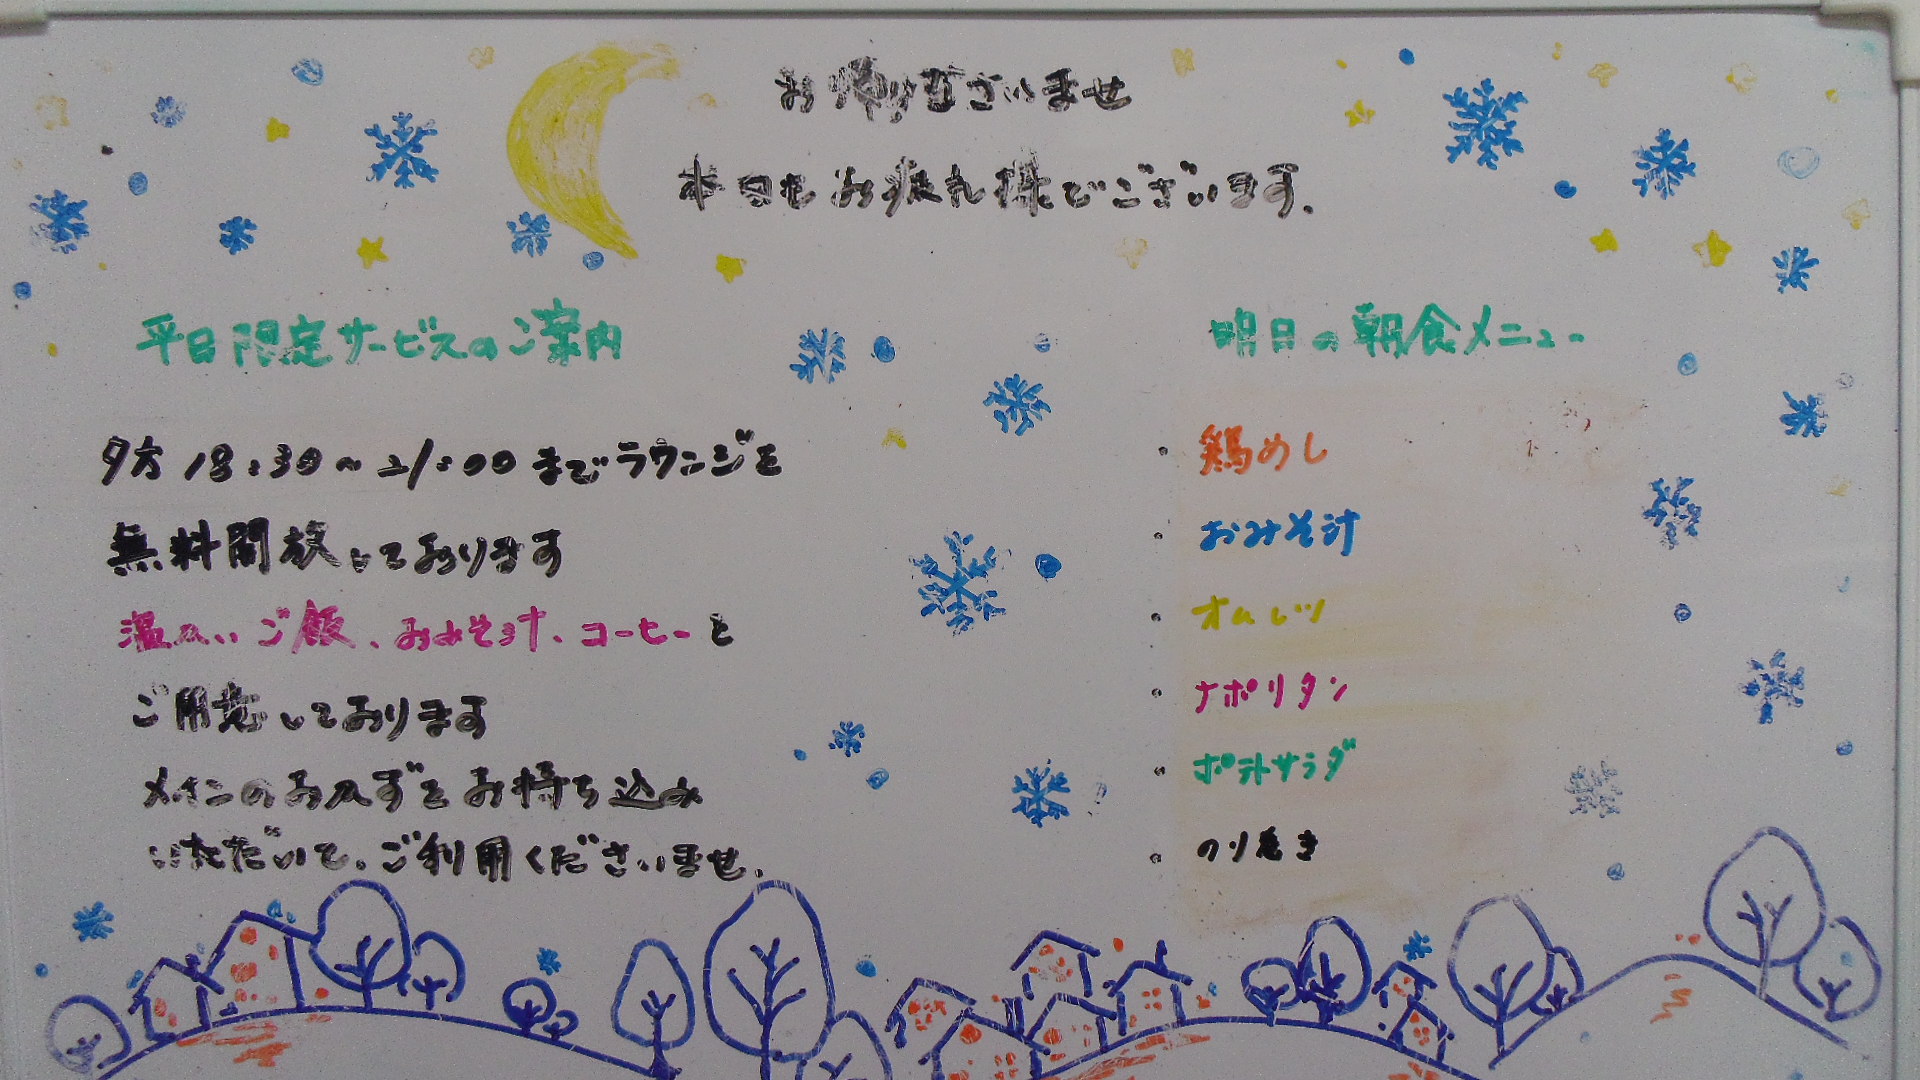 お帰りなさいませ
本日もお疲れ様でございます.
平日限定サービスのご案内
夕方18:30~21:00までラウンジを
無料開放しております
温かいご飯、おみそ汁、コーヒーと
ご用意しております
メインのおかずをお持ち込み
いただいて、ご利用くださいませ.
明日の朝食メニュー
・鶏めし
・おみそ汁
・オムレツ
・ナポリタン
・ポテトサラダ
・のり巻き